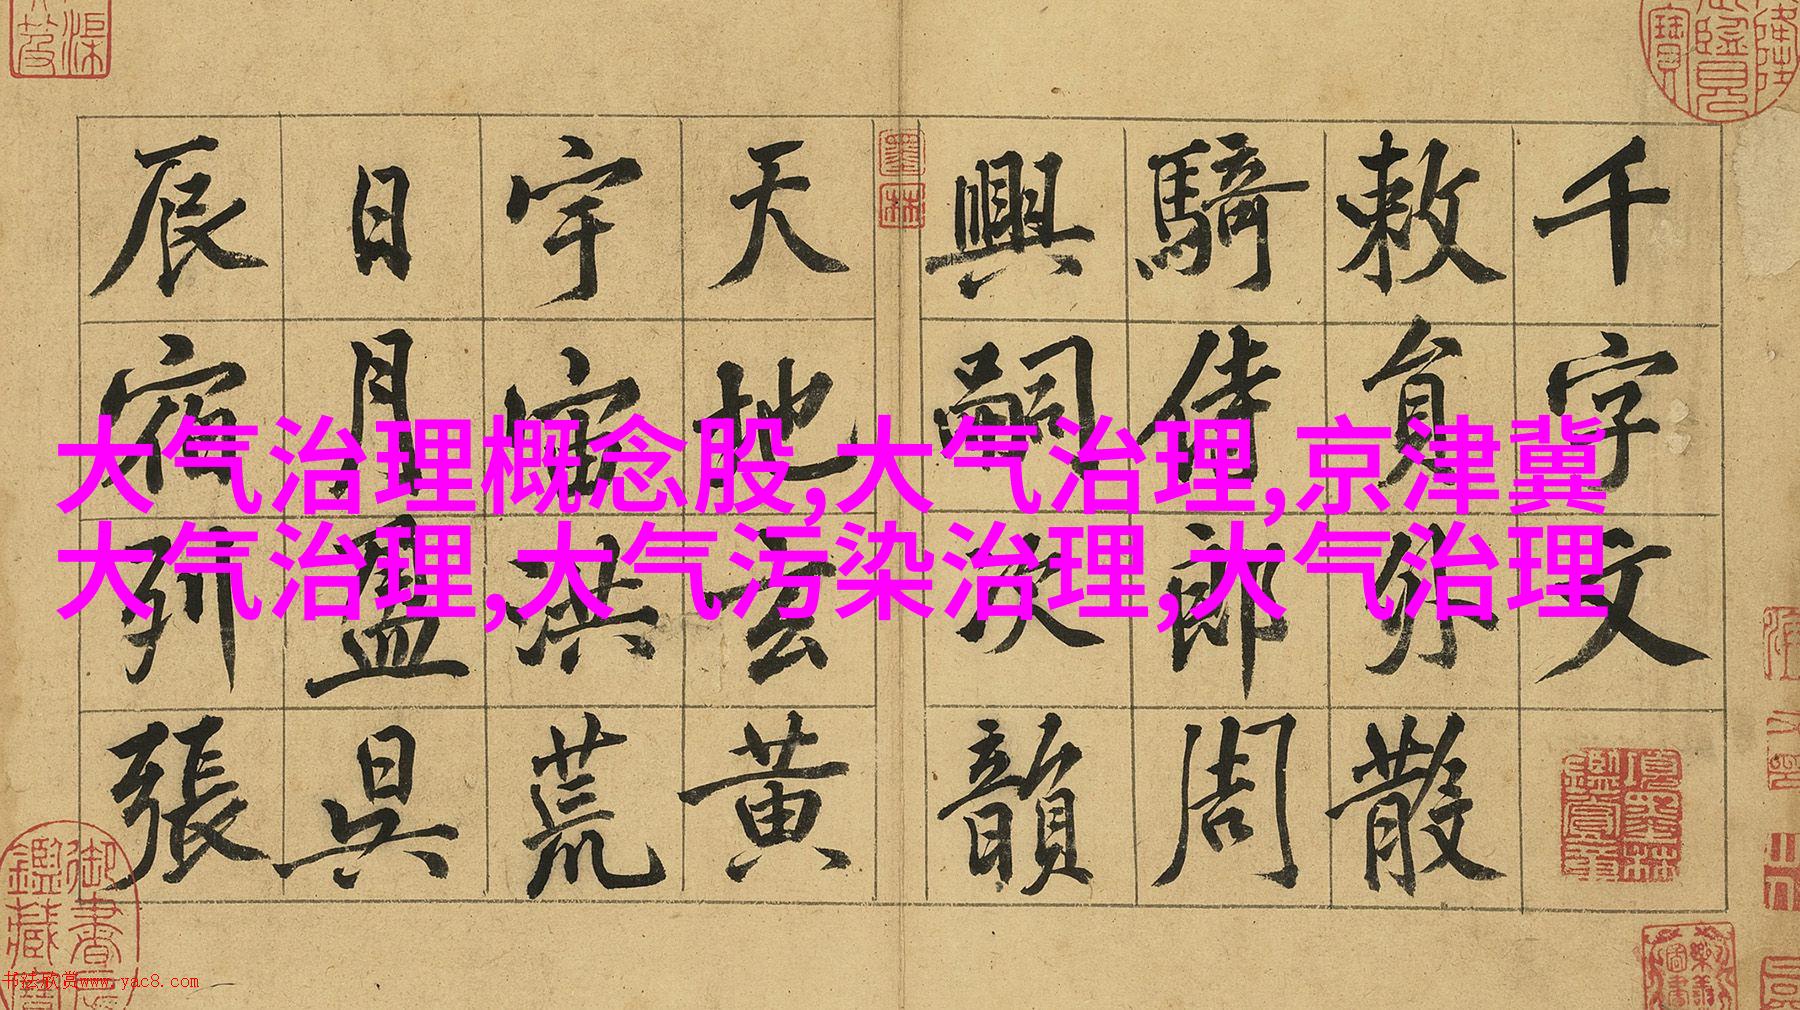 大气治理概念股,大气治理,京津冀
大气治理,大气污染治理,大气治理
千字文
敕員外散
騎侍郎周
興嗣次韻
天地玄黄
宇宙洪荒
日月盈昃
辰宿列張
墨林
項墨林鑑賞章
书法欣赏www.yac8.com